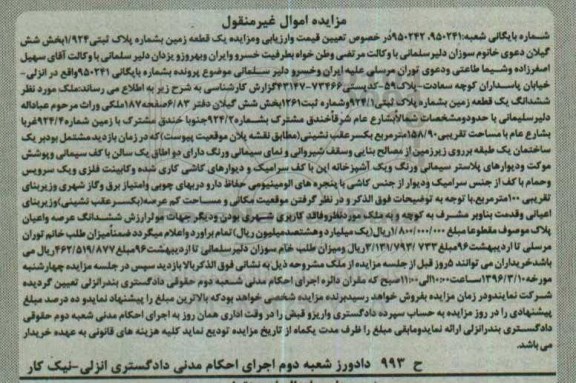 مزایده اموال غیرمنقول
شماره بایگانی شعبه:۹۵۰۲۴۱، ۹۵۰۲۴۲در خصوص تعیین قیمت وارزیابی ومزایده یک قطعه زمین بشماره پلاک ثبتی۱/۹۲۴بخش شش
گیلان دعوی خانم سوزان دلیرسلمانی با وکالت مرتضی وطن خواه بطرفیت خسرو وایران وبهروزو یزدان دلیر سلمانی با وکالت آقای سهیل
اصفرزاده وشیما طاعتی ودعوی توران مرسلی علیه ایران وخسرو دلیر سلمانی موضوع پرونده بشماره بایگانی ۹۵۰۲۴۱واقع در انزلی-
خیابان پاسداران کوچه سعادت-پلاک۵۹-کدپستی۷۳۴۶۶-۴۳۱۴۷گزارش کارشناسی به شرح زیر به اطلاع می رساند:ملک مورد نظر
ششدانگ یک قطعه زمین بشماره ۹۲۴/۱وشماره ثبت۱۲۶۱بخش شش گیلان دفتر ۶/۸۳صفحه۱۸۷ملکی وراث مرحوم عبداله
دلیرسلیمانی با حدودومشخصات شمالابشارع عام شرقاخندق مشترک بشماره۹۲۴/۲جنوبا خندق مشترک با زمین شماره۹۲۴/۴غربا
بشارع عام با مساحت تقریبی۱۵۸/۹۰مترمربع بکسرعقب نشینی(مطابق نقشه پلان موقعیت پیوست)که در زمان بازدید مشتمل بودبر یک
ساختمان یک طبقه برروی زیرزمین از مصالح بنایی وسقف شیروانی و نمای سیمانی ورنگ دارای دو اطاق یک سالن با کف سیمانی وپوشش
موکت ودیوارهای پلاستر سیمانی ورنگ ویک آشپزخانه اپن با کف سرامیک و دیوارهای کاشی کاری شده وکابینت فلزی ویک سرویس
وحمام با کف از جنس سرامیک ودیوار از جنس کاشی با پنجره های الومینیومی حفاظ دارو دربهای چوبی وامتیاز برق وگاز شهری وزیربنای
تقریبی ۱۰۰مترمربع.با توجه به توضیحات فوق الذکر و در نظر گرفتن موقعیت مکانی و مساحت کم عرصه(بکسرعقب نشینی)وزیربنای
اعیانی وقدمت بناوبر مشرف به کوچه وبه ملک موردنظروفاقد کاربری شهری بودن ودیگر جهات موثرارزش ششدانگ عرصه واعیان
پلاک موصوف مقطوعا مبلغ ۱/۸۰۰/۰۰۰/۰۰۰ریال(یک میلیارد وهشتصدمیلیون ریال)تمام براورد واعلام میگردد ضمنامیزان طلب خانم توران
مرسلی تا اردیبهشت۹۶مبلغ ۷۳۳ /۳/۱۳۱/۷۹۳ریال ومیزان طلب خانم سوزان دلیر سلمانی تا اردیبهشت۹۶مبلغ۴۶۲/۵۱۹/۸۷۷ریال می
باشدخریداران می توانند ۵روز قبل از جلسه مزایده از ملک مشروحه ذیل به نشانی فوق الذکربالا بازدید سپس در جلسه مزایده چهارشنبه
مورخه۱۳۹۶/۳/۱۰ساعت۱۰:۰۰الی۱۱:۰۰صبح که مقران دائره اجرای احکام مدنی شعبه دوم حقوقی دادگستری بندرانزلی تعیین گردیده
شرکت نمایندودر زمان مزایده بفروش خواهد رسیدبرنده مزایده شخصی خواهد بودکه بالاترین مبلغ را پیشنهاد نمایدو ده درصد مبلغ
پیشنهادی را در روز مزایده به حساب سپرده دادگستری واریزو قبض را در وقت اداری همان روز به اجرای احکام مدنی شعبه دوم حقوقی
دادگستری بندرانزلی ارائه نمایدومابقی مبلغ را ظرف مدت یکماه از تاریخ مزایده تودیع نماید کلیه هزینه های قانونی به عهده خریدار
می باشد.
ح ۹۹۳ دادورز شعبه دوم اجرای احکام مدنی دادگستری انزلی-نیک کار